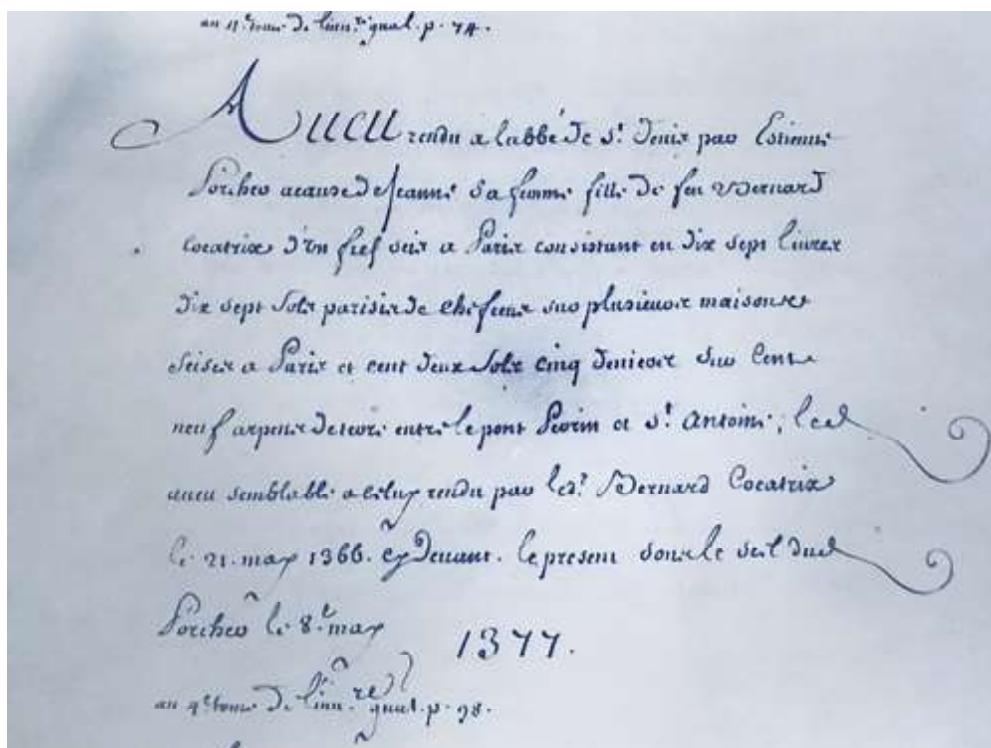 au 4.e tome De linv.re gnal. p. 74.
Aueu rendu a labbé De St. Denis par Estienne
Porcher acause de Jeanne sa femme fille De feu Bernard
Cocatrix d'un fief seis a Paris consistant en dix sept livres
dix sept sols parisis de chefcens sur plusieurs maisons
seises a Paris et cent deux sols cinq deniers sur Cent
neuf arpens de terre entre le pont Perrin et St. Antoine, led
aueu semblable a celuy rendu par led.t Bernard Cocatrix
le 21. may 1366. cy Deuant. le present sous le seel dud
Porcher le 8.e may
1377.
au 4.e tome De linv.re gnal. p. 98.